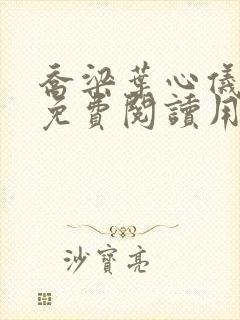 喬梁葉心儀
免費閱讀用
沙寶亮